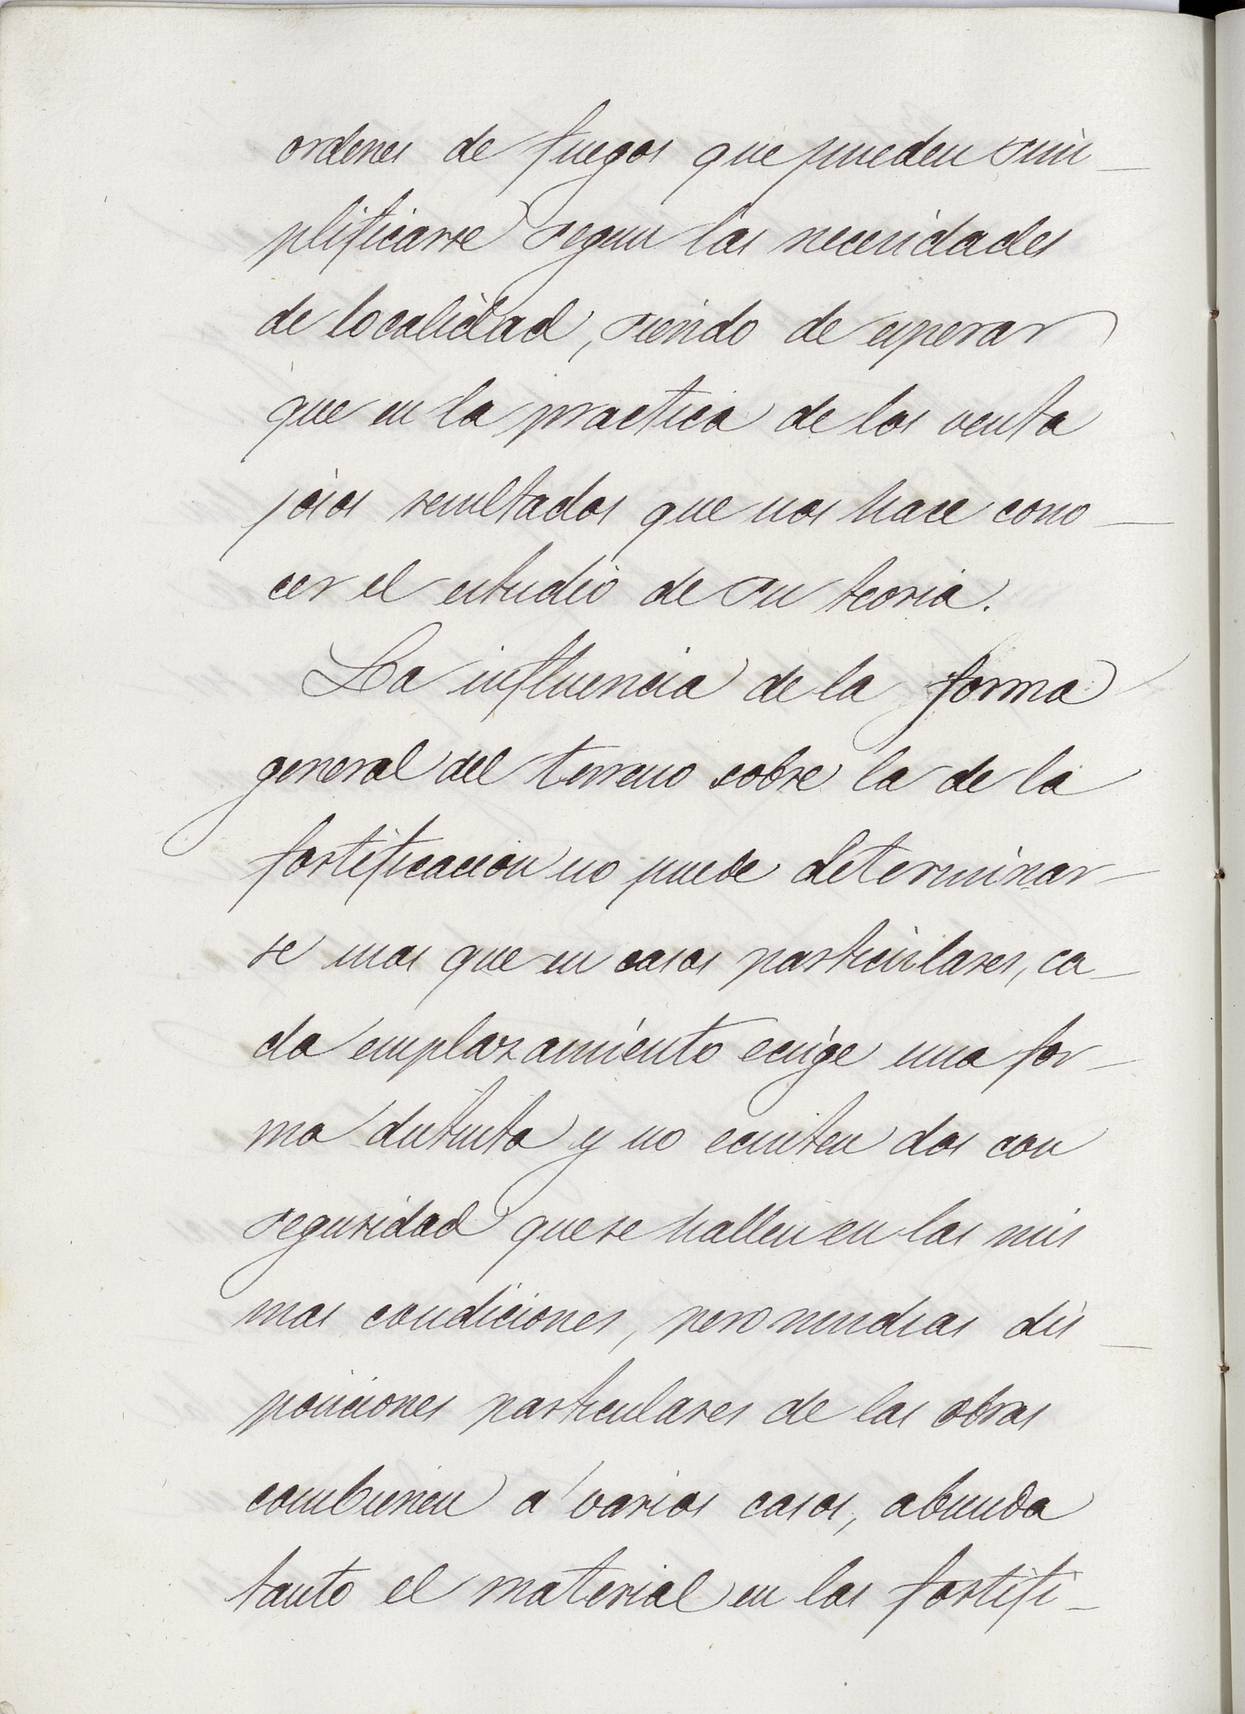 ordenes de fuegos que pueden sim-
plificarse segun las necesidades
de localidad, siendo de esperar
que en la practica de los venta
josos resultados que nos hace cono-
cer el estudio de su teoria.
La influencia de la forma
general del terreno sobre la de la
fortificacion no puede determinar-
se mas que en casos particulares, ca-
da emplazamiento ecsige una for-
ma distinta y no ecsisten dos con
seguridad que se hallen en las mis
mas condiciones, pero muchas dis-
posiciones particulares de las obras
combienen á varios casos, abunda
tanto el material en las fortifi-